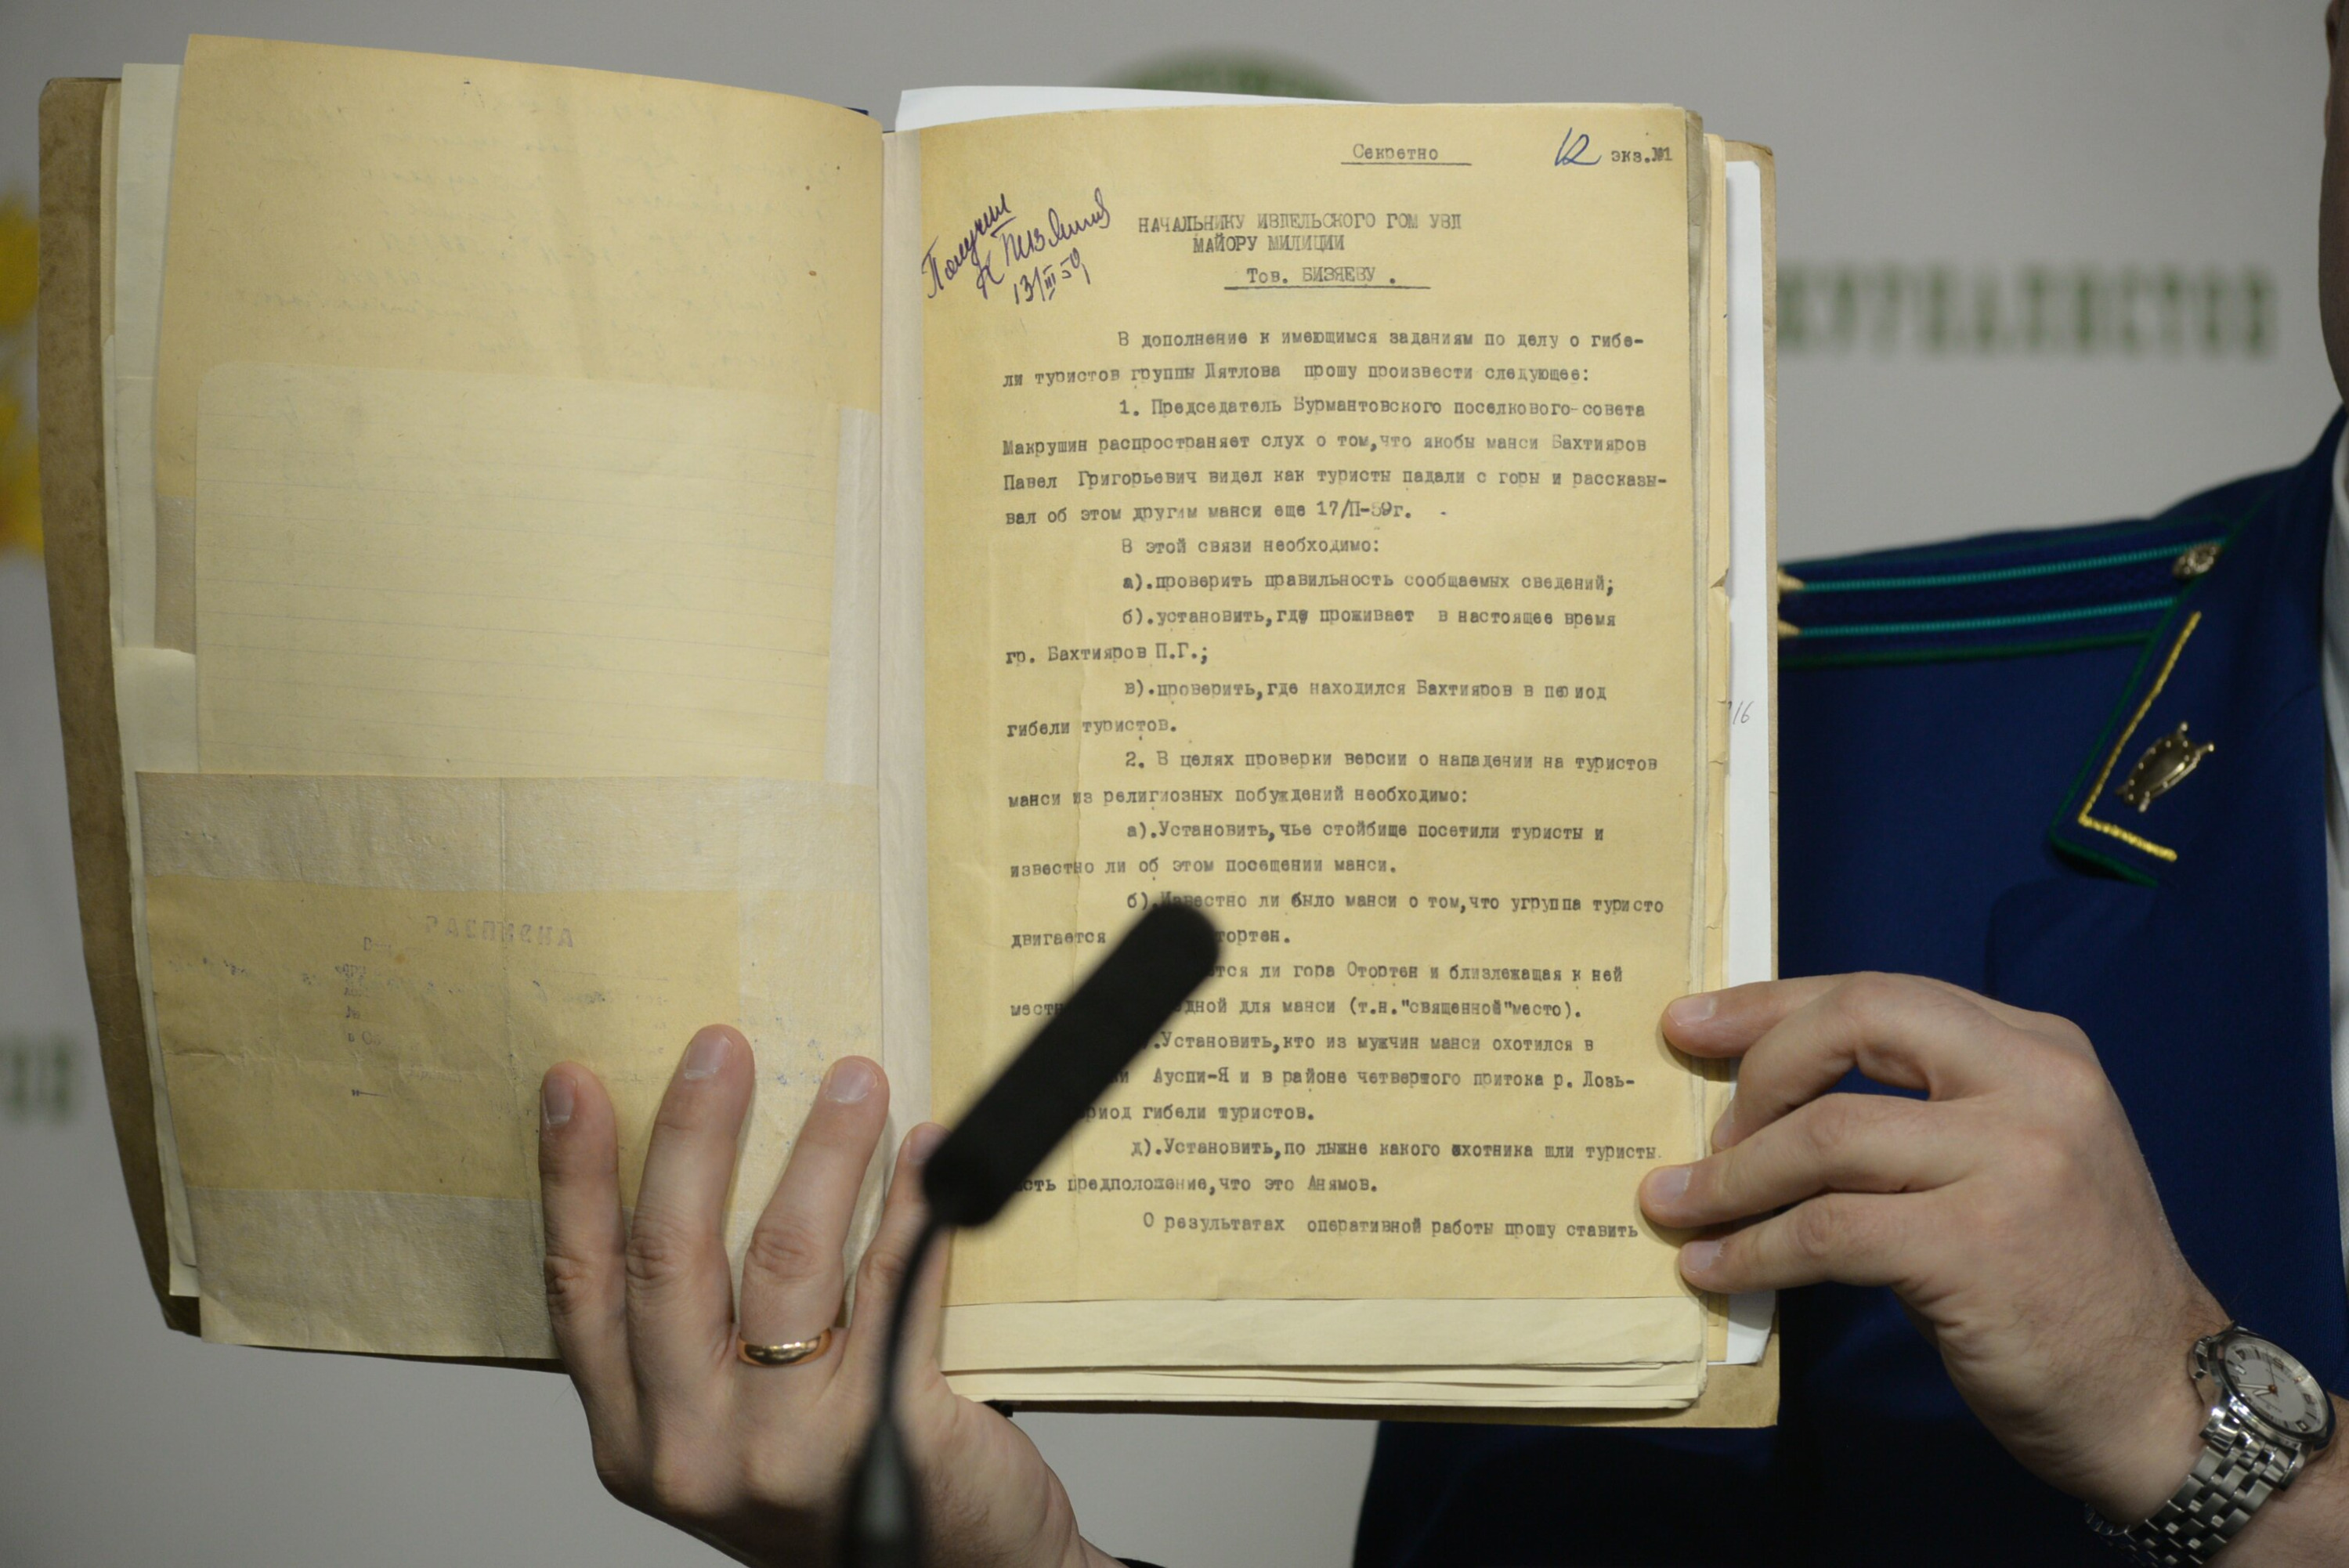 Секретно
12 экз.№1
Получил
13/III-59
НАЧАЛЬНИКУ ИВДЕЛЬСКОГО ГОМ УВД
МАЙОРУ МИЛИЦИИ
Тов. БИЗЯЕВУ .
В дополнение к имеющимся заданиям по делу о гибе-
ли туристов группы Дятлова прошу произвести следующее:
1. Председатель Бурмантовского поселкового-совета
Макрушин распространяет слух о том,что якобы манси Бахтияров
Павел Григорьевич видел как туристы падали с горы и рассказы-
вал об этом другим манси еще 17/П-59г.
В этой связи необходимо:
а).проверить правильность сообщаемых сведений;
б).установить,где проживает в настоящее время
гр. Бахтияров П.Г.;
в).проверить,где находился Бахтияров в период
гибели туристов.
2. В целях проверки версии о нападении на туристов
манси из религиозных побуждений необходимо:
а).Установить,чье стойбище посетили туристы и
известно ли об этом посещении манси.
б).Известно ли было манси о том,что угруппа туристо
двигается тортен.
ется ли гора Отортен и близлежащая к ней
мест едной для манси (т.н."священной"место).
.Установить,кто из мужчин манси охотился в
ии Ауспи-Я и в районе четвертого притока р. Лозь-
риод гибели туристов.
д).Установить,по лыжне какого охотника шли туристы.
сть предположение,что это Анямов.
О результатах оперативной работы прошу ставить
ЖУРНАЛИСТОВ
716